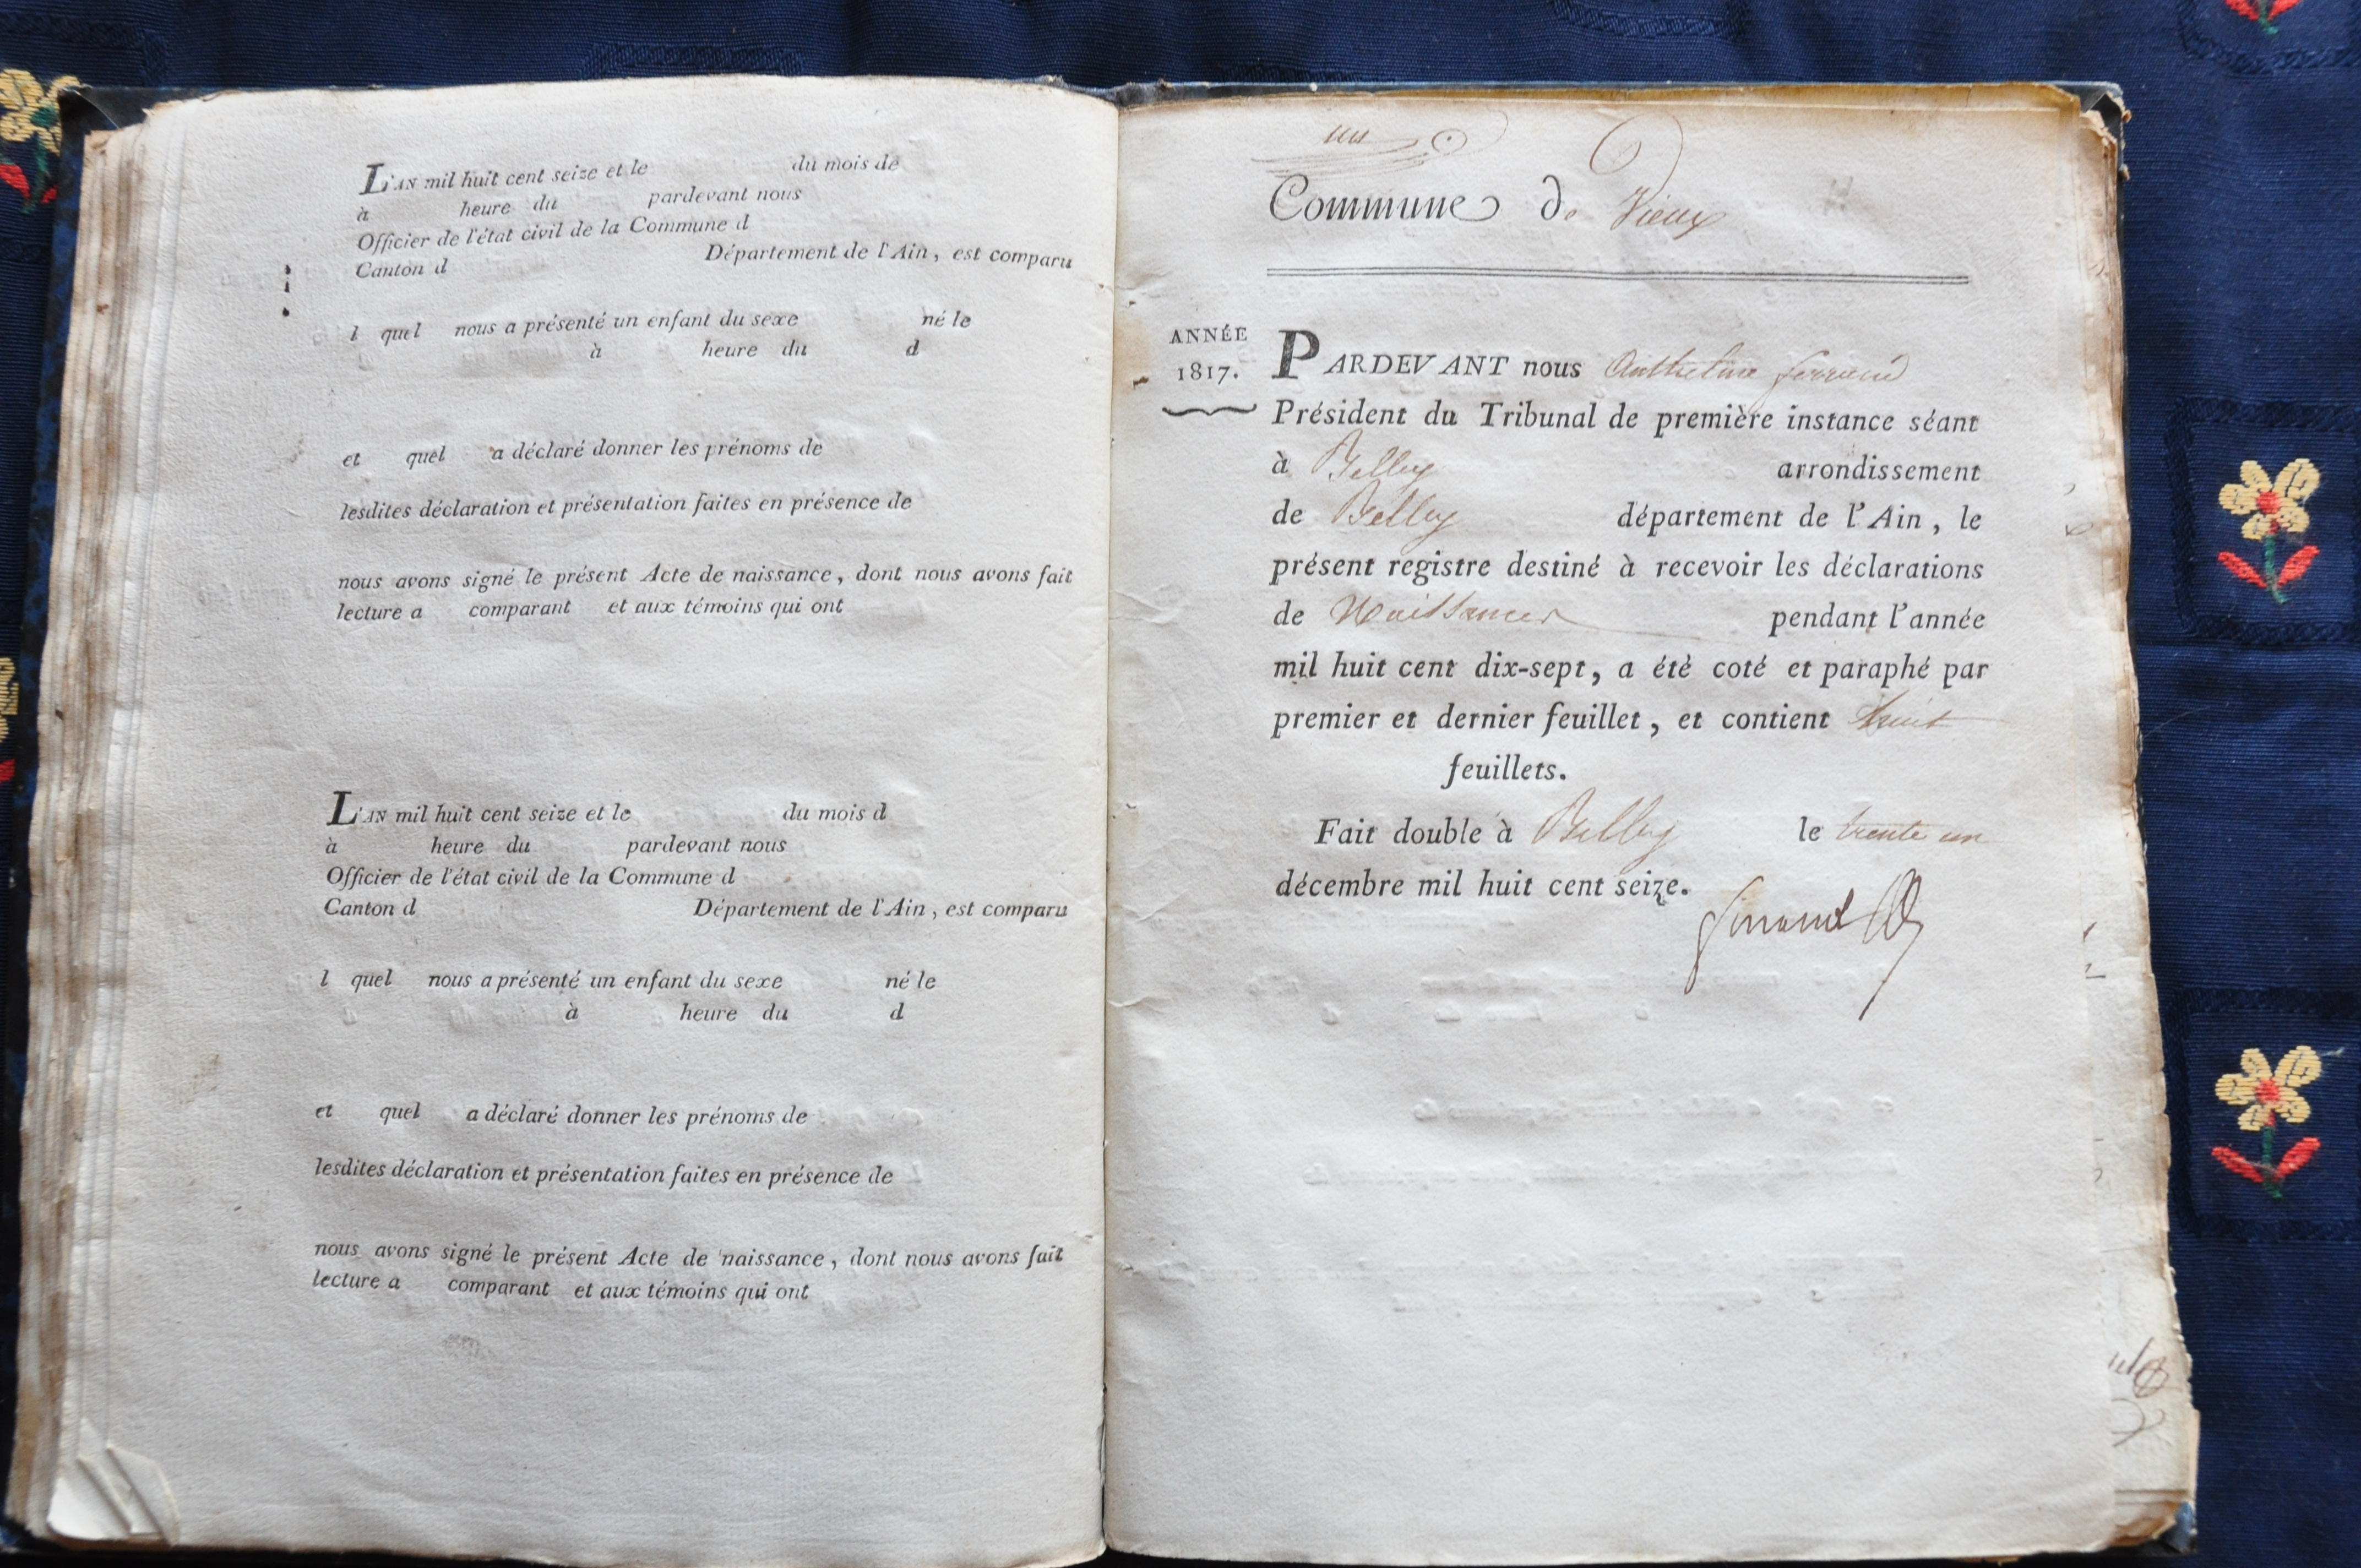 L'AN mil huit cent seize et le du mois de
à heure du pardevant nous
Officier de l'état civil de la Commune d
Canton d Département de l'Ain, est comparu
l quel nous a présenté un enfant du sexe né le
à heure du d
et quel a déclaré donner les prénoms de
lesdites déclaration et présentation faites en présence de
nous avons signé le présent Acte de naissance, dont nous avons fait
lecture a comparant et aux témoins qui ont
L'AN mil huit cent seize et le du mois d
à heure du pardevant nous
Officier de l'état civil de la Commune d
Canton d Département de l'Ain, est comparu
l quel nous a présenté un enfant du sexe né le
à heure du d
et quel a déclaré donner les prénoms de
lesdites déclaration et présentation faites en présence de
nous avons signé le présent Acte de naissance, dont nous avons fait
lecture a comparant et aux témoins qui ont
un
Commune de Vieux
ANNÉE
1817.
PARDEVANT nous Anthelme ferrand
Président du Tribunal de première instance séant
à Belley arrondissement
de Belley département de l'Ain, le
présent registre destiné à recevoir les déclarations
de Naissances pendant l'année
mil huit cent dix-sept, a étè coté et paraphé par
premier et dernier feuillet, et contient huit
feuillets.
Fait double à Belley le trente un
décembre mil huit cent seize.